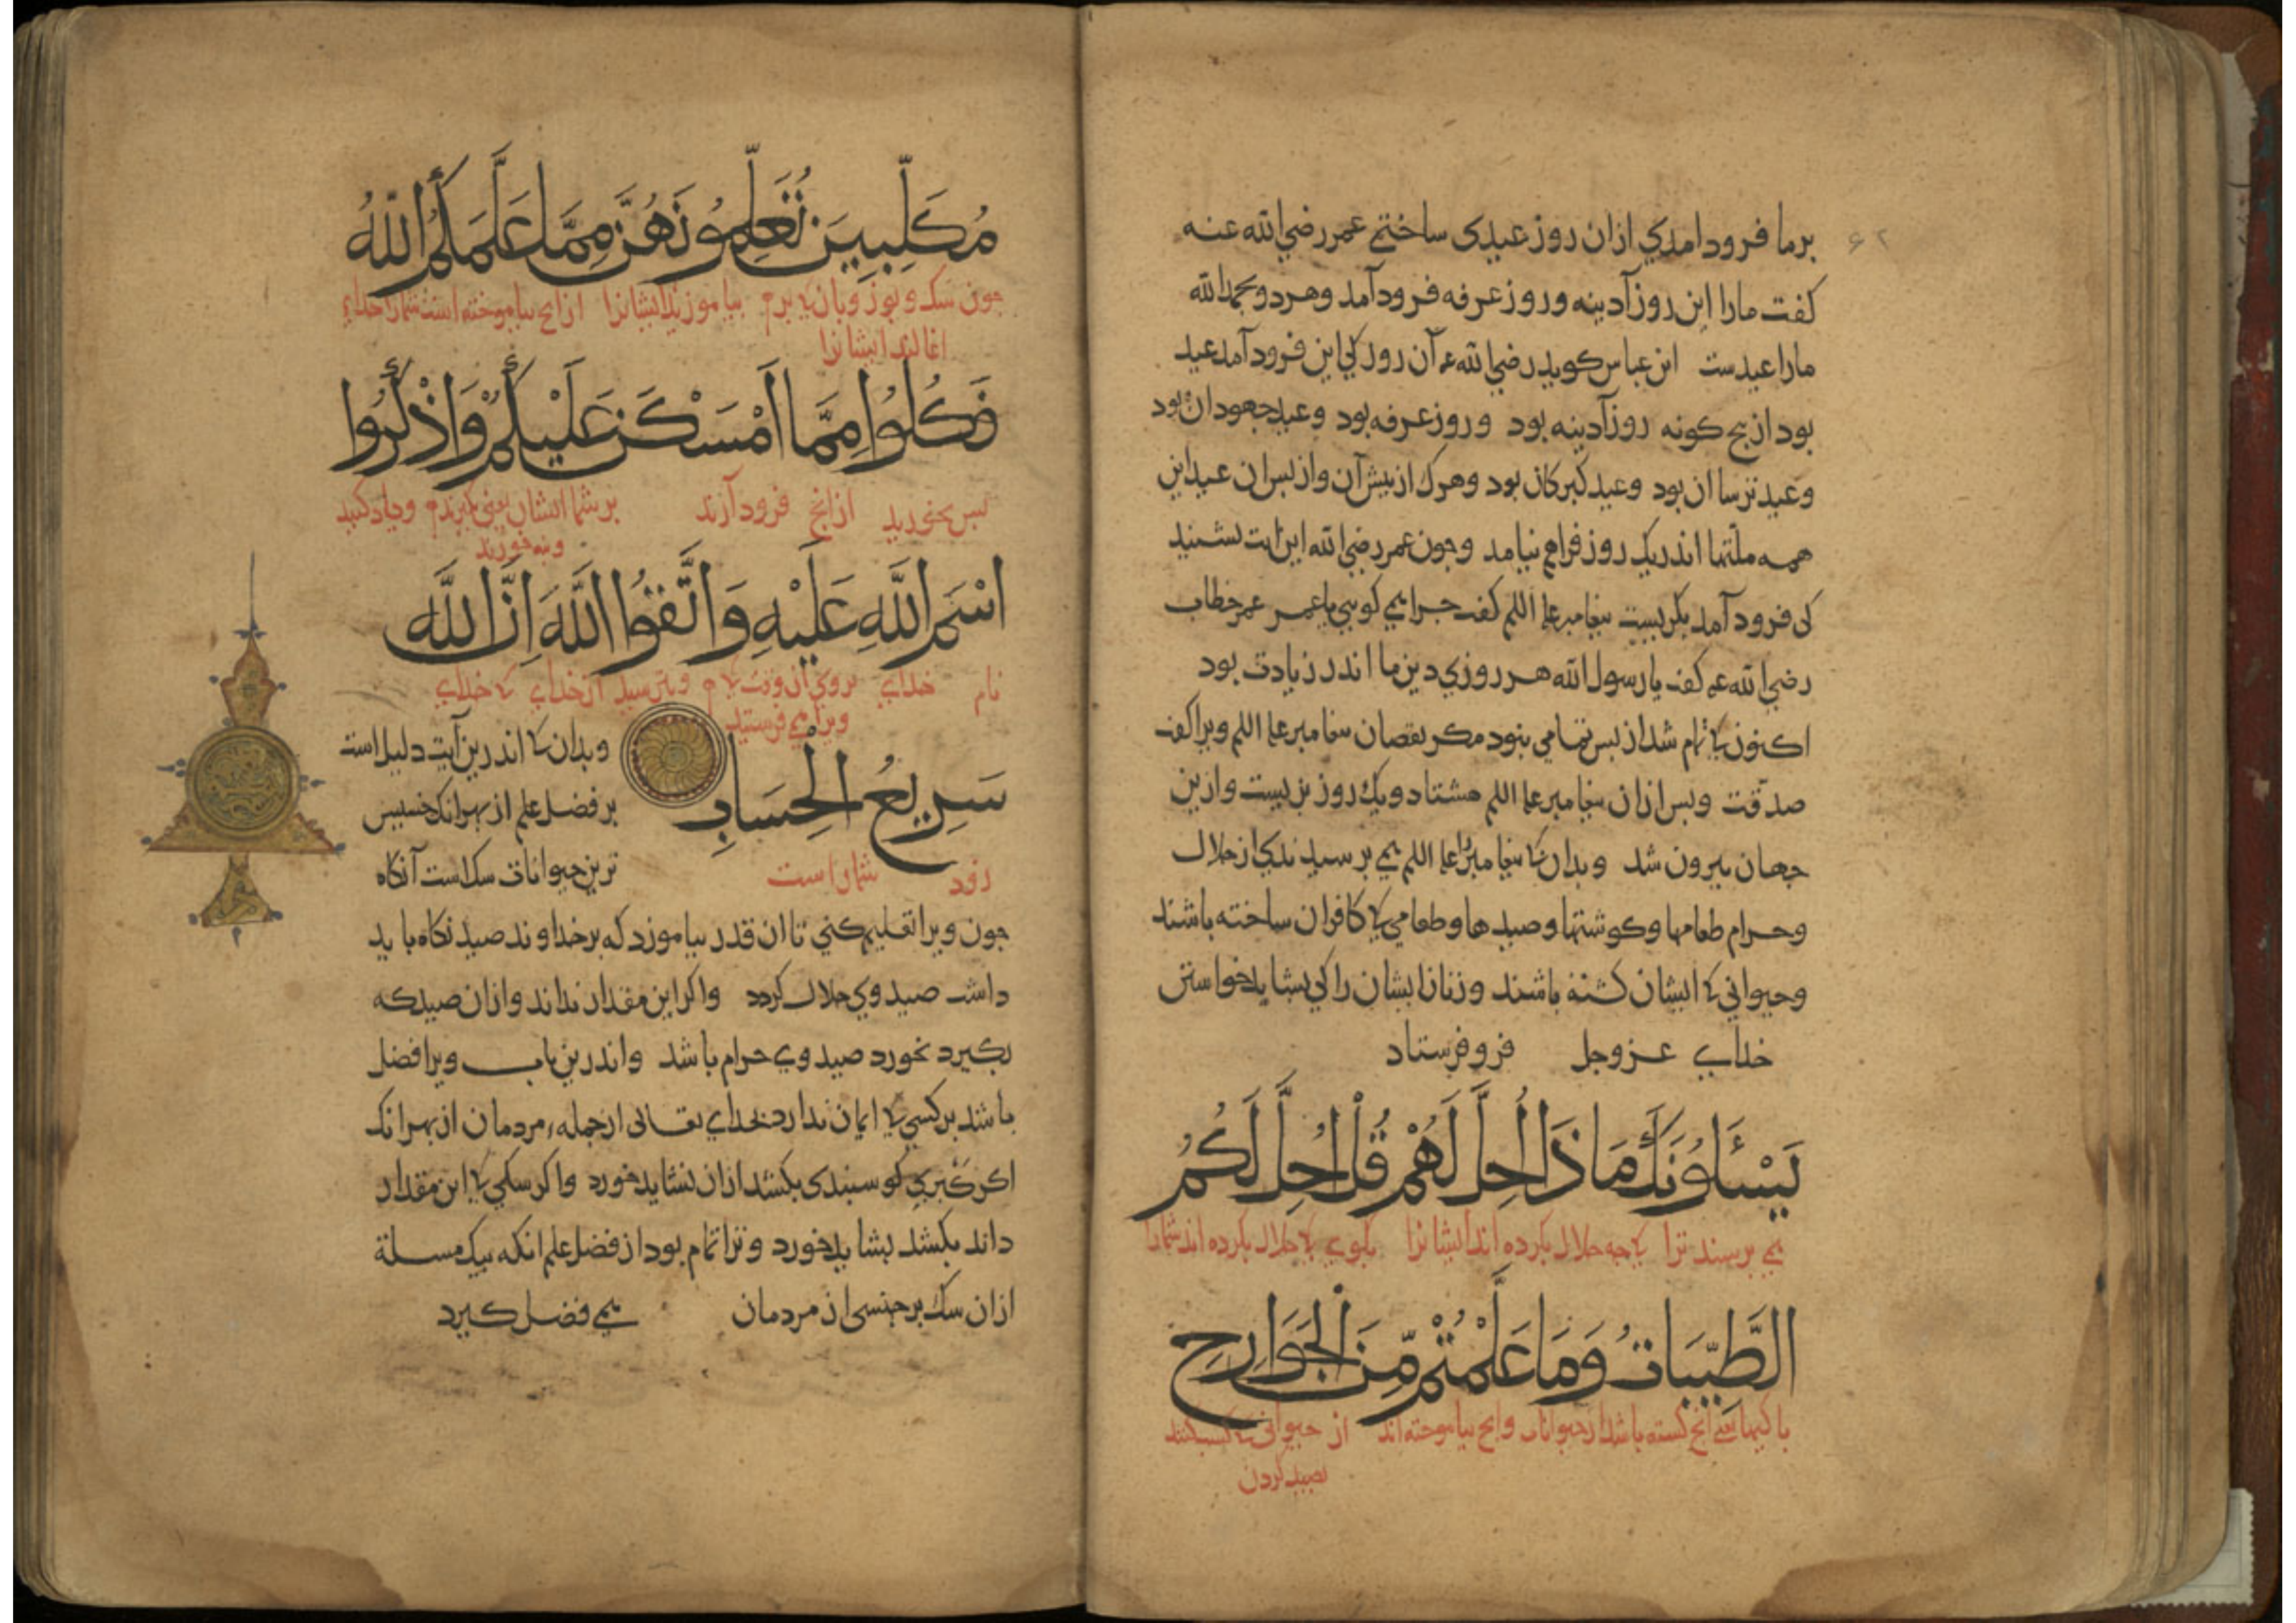 برما فرودامدي ازان روز عیدی ساختیم عمر رضي الله عنه
۶۲
کفت مارا این روز آدینه وروز عرفه فرودآمد وهردو بحمد الله
مارا عیدست ابن عباس کوید رضي الله عنه آن روز کي این فرودآمد عید
بود از بنج کونه روز آدینه بود وروز عرفه بود وعید جهودان بود
وعید ترساان بود وعید کبرکان بود وهرکز از بیش آن واز بس ان عید این
همه ملتها اندر یک روز فراهم نیامد وجون عمر رضي الله این ایت بشنید
کی فرود آمد بکریست بیغامبر علیه السلم کفت جرا همي کریي یا عمر عمر خطاب
رضي الله عنه کفت یا رسول الله هر روزي دین ما اندر زیادت بود
اکنون کی تمام شد از بس تمامي نبود مکر نقصان بیغامبر علیه السلم ویرا کفت
صدقت وبس ازان بیغامبر علیه السلم هشتاد ویک روز بزیست وازین
جهان بیرون شد وبدان کی بیغامبررا علیه السلم همي برسیدندي از حلال
وحرام طعامها وکوشتها وصیدها وطعامي کی کافران ساخته باشند
وحیواني کی ایشان کشته باشند وزنان ایشان را کي بشاید خواستن
خدای عزوجل فروفرستاد
يَسْئَلُونَكَ مَاذَا أُحِلَّ لَهُمْ قُلْ أُحِلَّ لَكُمُ
همي برسند ترا کی جه حلال بکرده اند ایشانرا بکوي کی حلال بکرده اند شمارا
الطَّيِّبَاتُ وَمَا عَلَّمْتُمْ مِّنَ الْجَوَارِحِ
باکیها یعني انج کشته باشد از حیوانات وانج بیاموخته اند از حیوانی کی کسب کنند
بصید کردن
مُكَلِّبِينَ تُعَلِّمُونَهُنَّ مِمَّا عَلَّمَكُمُ اللّٰهُ
جون سک ویوز وبان کی برم بیاموزید ایشانرا ازانج بیاموخته است شمارا خدای
اغالند ایشانرا
فَكُلُوا مِمَّا أَمْسَكْنَ عَلَيْكُمْ وَاذْكُرُوا
بس بخورید ازانج فرود آرند برشما ایشان یعني کیرند ویاد کنید
ونه خورند
اسْمَ اللَّهِ عَلَيْهِ وَاتَّقُوا اللَّهَ إِنَّ اللَّهَ
نام خدای بروی ان وقت کی وبترسید از خدای کی خدای
ویرا همي فرستید
سَرِيعُ الْحِسَابِ
زود شماراست
وبدان کی اندرین آیت دلیل است
بر فضل علم از بهر انک خسیس
ترین حیوانات سک است آنکاه
جون ویرا تعلیم کني تا ان قدر بیاموزد که بر خداوند صید نکاه باید
داشت صید وي حلال کردد واکر این مقدار نداند وازان صید که
بکیرد بخورد صید وي حرام باشد واندرین باب ویرا فضل
باشد بر کسي کی ایمان ندارد بخداي تعالی از جمله مردمان از بهر انک
اکر کبري کوسبندی بکشد ازان نشاید خورد واکر سکي کی این مقدار
داند بکشد بشاید خورد وترا تمام بود از فضل علم انکه بیک مسلة
ازان سک بر جنسی از مردمان همي فضل کیرد